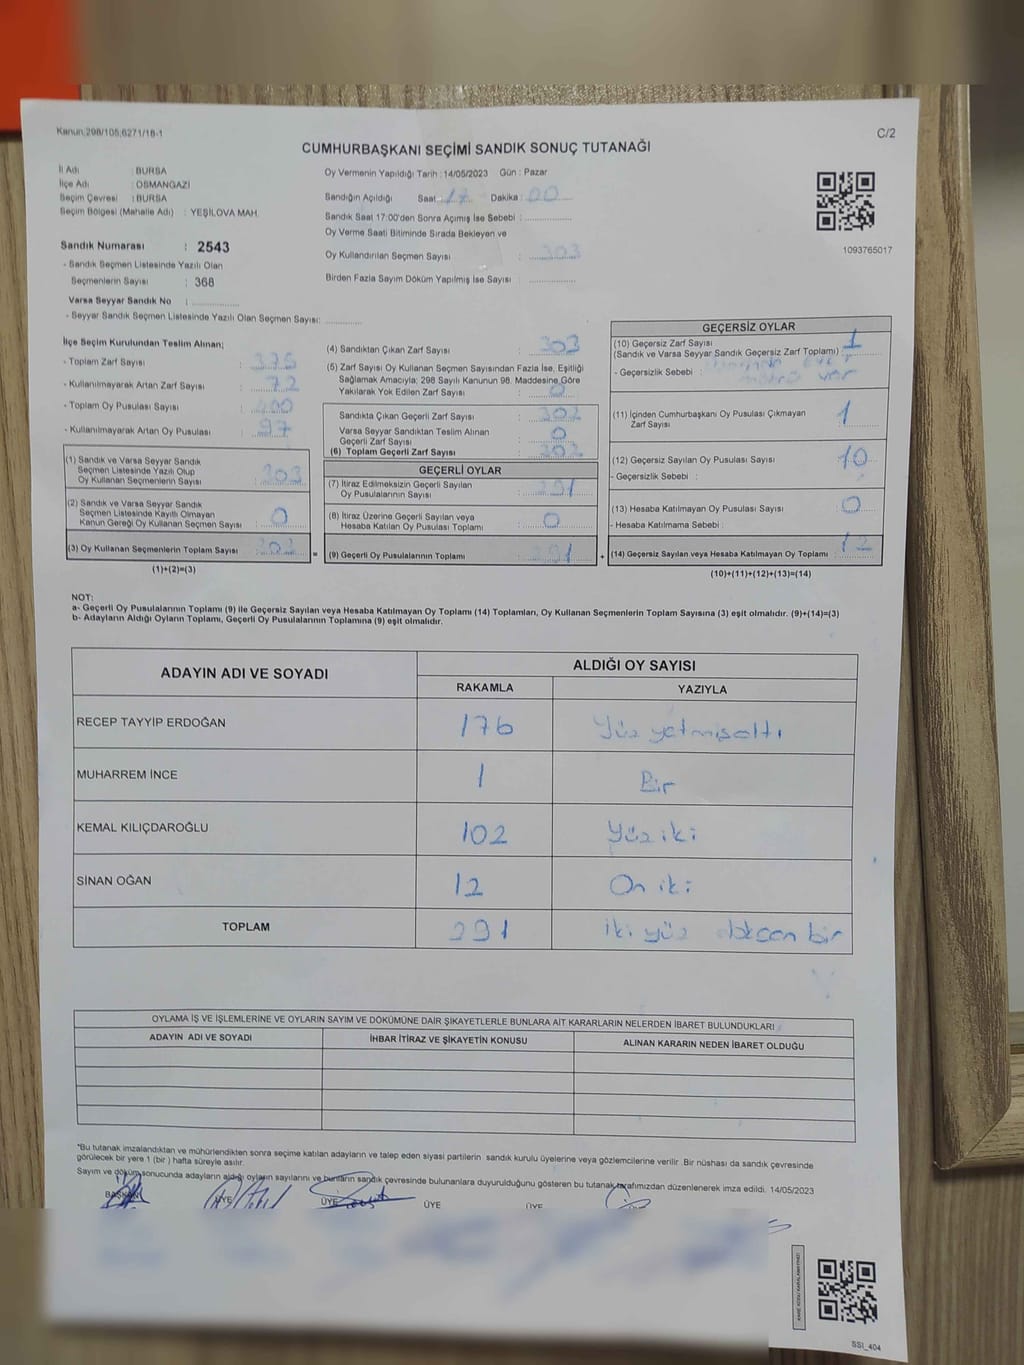 Kanun:298/105,6271/18-1
C/2
CUMHURBAŞKANI SEÇİMİ SANDIK SONUÇ TUTANAĞI
İl Adı : BURSA
İlçe Adı : OSMANGAZİ
Seçim Çevresi : BURSA
Seçim Bölgesi (Mahalle Adı) : YEŞİLOVA MAH.
Sandık Numarası : 2543
- Sandık Seçmen Listesinde Yazılı Olan
Seçmenlerin Sayısı : 368
Varsa Seyyar Sandık No :
- Seyyar Sandık Seçmen Listesinde Yazılı Olan Seçmen Sayısı:
Oy Vermenin Yapıldığı Tarih : 14/05/2023 Gün : Pazar
Sandığın Açıldığı Saat : 17 Dakika : 00
Sandık Saat 17:00'den Sonra Açımış İse Sebebi :
Oy Verme Saati Bitiminde Sırada Bekleyen ve
Oy Kullandırılan Seçmen Sayısı : 303
Birden Fazla Sayım Döküm Yapılmış İse Sayısı :
1093765017
İlçe Seçim Kurulundan Teslim Alınan;
- Toplam Zarf Sayısı : 375
- Kullanılmayarak Artan Zarf Sayısı : 72
- Toplam Oy Pusulası Sayısı : 400
- Kullanılmayarak Artan Oy Pusulası : 97
(1) Sandık ve Varsa Seyyar Sandık
Seçmen Listesinde Yazılı Olup
Oy Kullanan Seçmenlerin Sayısı : 303
(2) Sandık ve Varsa Seyyar Sandık
Seçmen Listesinde Kayıtlı Olmayan
Kanun Gereği Oy Kullanan Seçmen Sayısı : 0
(3) Oy Kullanan Seçmenlerin Toplam Sayısı :
(1)+(2)=(3)
(4) Sandıktan Çıkan Zarf Sayısı : 303
(5) Zarf Sayısı Oy Kullanan Seçmen Sayısından Fazla İse, Eşitliği
Sağlamak Amacıyla; 298 Sayılı Kanunun 98. Maddesine Göre
Yakılarak Yok Edilen Zarf Sayısı : 0
Sandıkta Çıkan Geçerli Zarf Sayısı : 302
Varsa Seyyar Sandıktan Teslim Alınan
Geçerli Zarf Sayısı : 0
(6) Toplam Geçerli Zarf Sayısı : 302
GEÇERLİ OYLAR
(7) İtiraz Edilmeksizin Geçerli Sayılan
Oy Pusulalarının Sayısı : 291
(8) İtiraz Üzerine Geçerli Sayılan veya
Hesaba Katılan Oy Pusulası Toplamı : 0
= (9) Geçerli Oy Pusulalarının Toplamı : 291 +
GEÇERSİZ OYLAR
(10) Geçersiz Zarf Sayısı : 1
(Sandık ve Varsa Seyyar Sandık Geçersiz Zarf Toplamı)
- Geçersizlik Sebebi : mührü var
(11) İçinden Cumhurbaşkanı Oy Pusulası Çıkmayan
Zarf Sayısı : 1
(12) Geçersiz Sayılan Oy Pusulası Sayısı : 10
- Geçersizlik Sebebi :
(13) Hesaba Katılmayan Oy Pusulası Sayısı : 0
- Hesaba Katılmama Sebebi :
(14) Geçersiz Sayılan veya Hesaba Katılmayan Oy Toplamı : 12
(10)+(11)+(12)+(13)=(14)
NOT:
a- Geçerli Oy Pusulalarının Toplamı (9) ile Geçersiz Sayılan veya Hesaba Katılmayan Oy Toplamı (14) Toplamları, Oy Kullanan Seçmenlerin Toplam Sayısına (3) eşit olmalıdır. (9)+(14)=(3)
b- Adayların Aldığı Oyların Toplamı, Geçerli Oy Pusulalarının Toplamına (9) eşit olmalıdır.
ADAYIN ADI VE SOYADI ALDIĞI OY SAYISI
RAKAMLA YAZIYLA
RECEP TAYYİP ERDOĞAN 176 Yüz yetmişaltı
MUHARREM İNCE 1 Bir
KEMAL KILIÇDAROĞLU 102 Yüz iki
SİNAN OĞAN 12 On iki
TOPLAM 291 iki yüz doksan bir
OYLAMA İŞ VE İŞLEMLERİNE VE OYLARIN SAYIM VE DÖKÜMÜNE DAİR ŞİKAYETLERLE BUNLARA AİT KARARLARIN NELERDEN İBARET BULUNDUKLARI
ADAYIN ADI VE SOYADI İHBAR İTİRAZ VE ŞİKAYETİN KONUSU ALINAN KARARIN NEDEN İBARET OLDUĞU
*Bu tutanak imzalandıktan ve mühürlendikten sonra seçime katılan adayların ve talep eden siyasi partilerin sandık kurulu üyelerine veya gözlemcilerine verilir. Bir nüshası da sandık çevresinde
görülecek bir yere 1 (bir) hafta süreyle asılır.
Sayım ve döküm sonucunda adayların aldığı oyların sayılarını ve bunların sandık çevresinde bulunanlara duyurulduğunu gösteren bu tutanak tarafımızdan düzenlenerek imza edildi. 14/05/2023
BAŞKAN ÜYE ÜYE ÜYE ÜYE
SSI_404